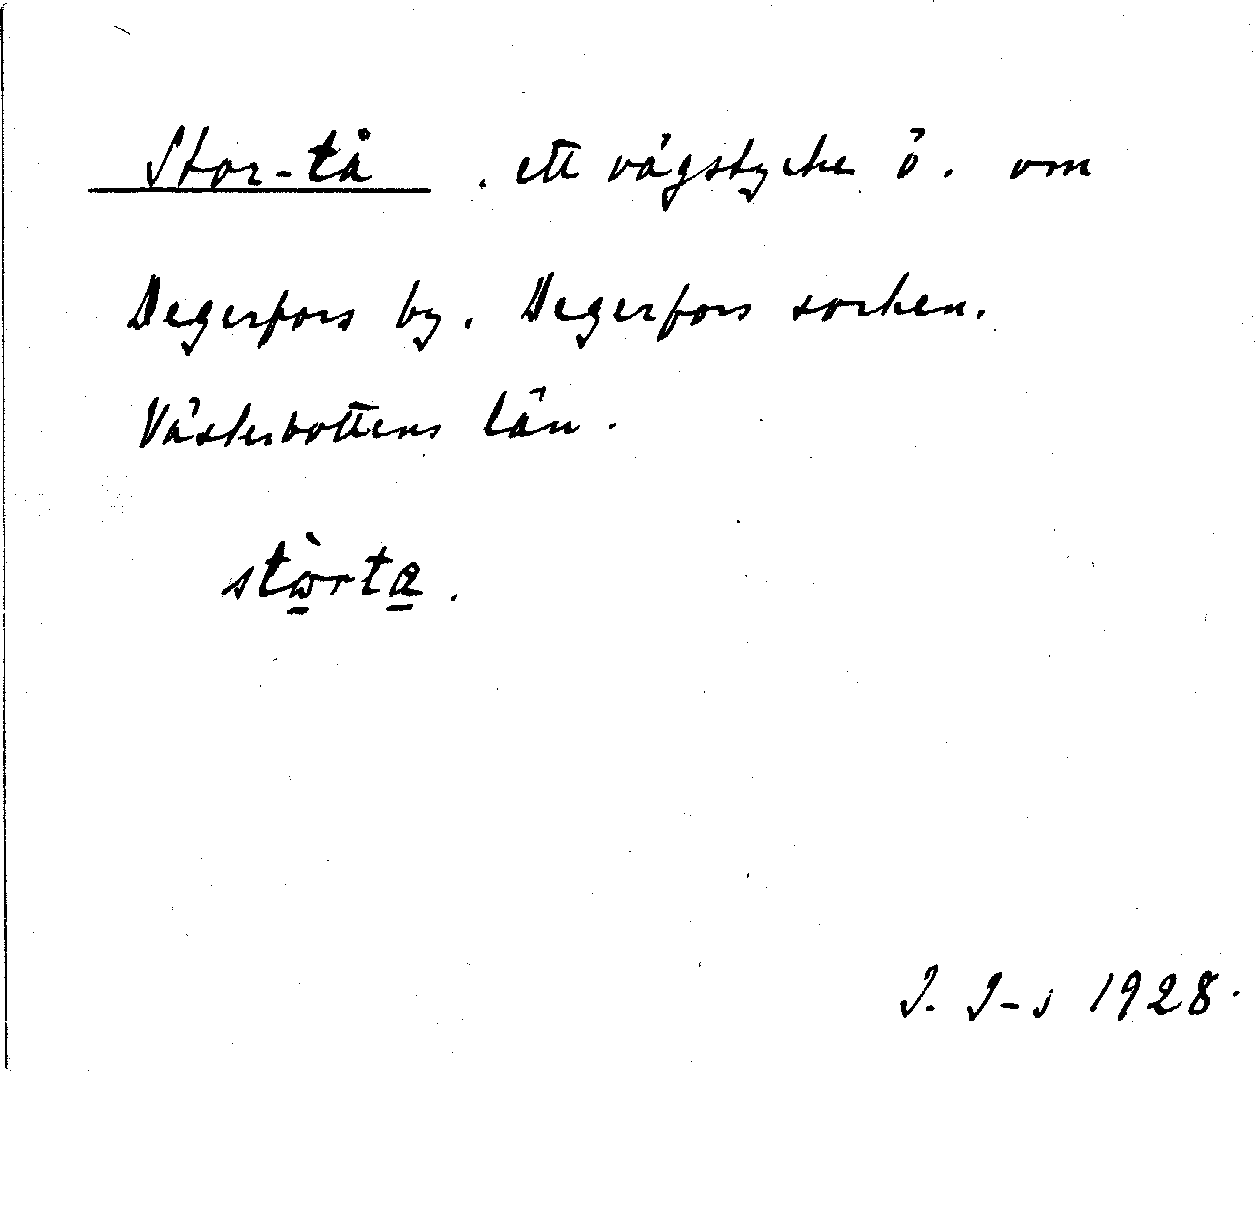 Stor-tå . ett vägstycke ö. om
Degerfors by. Degerfors socken.
Västerbottens län.
J. J-s 1928.